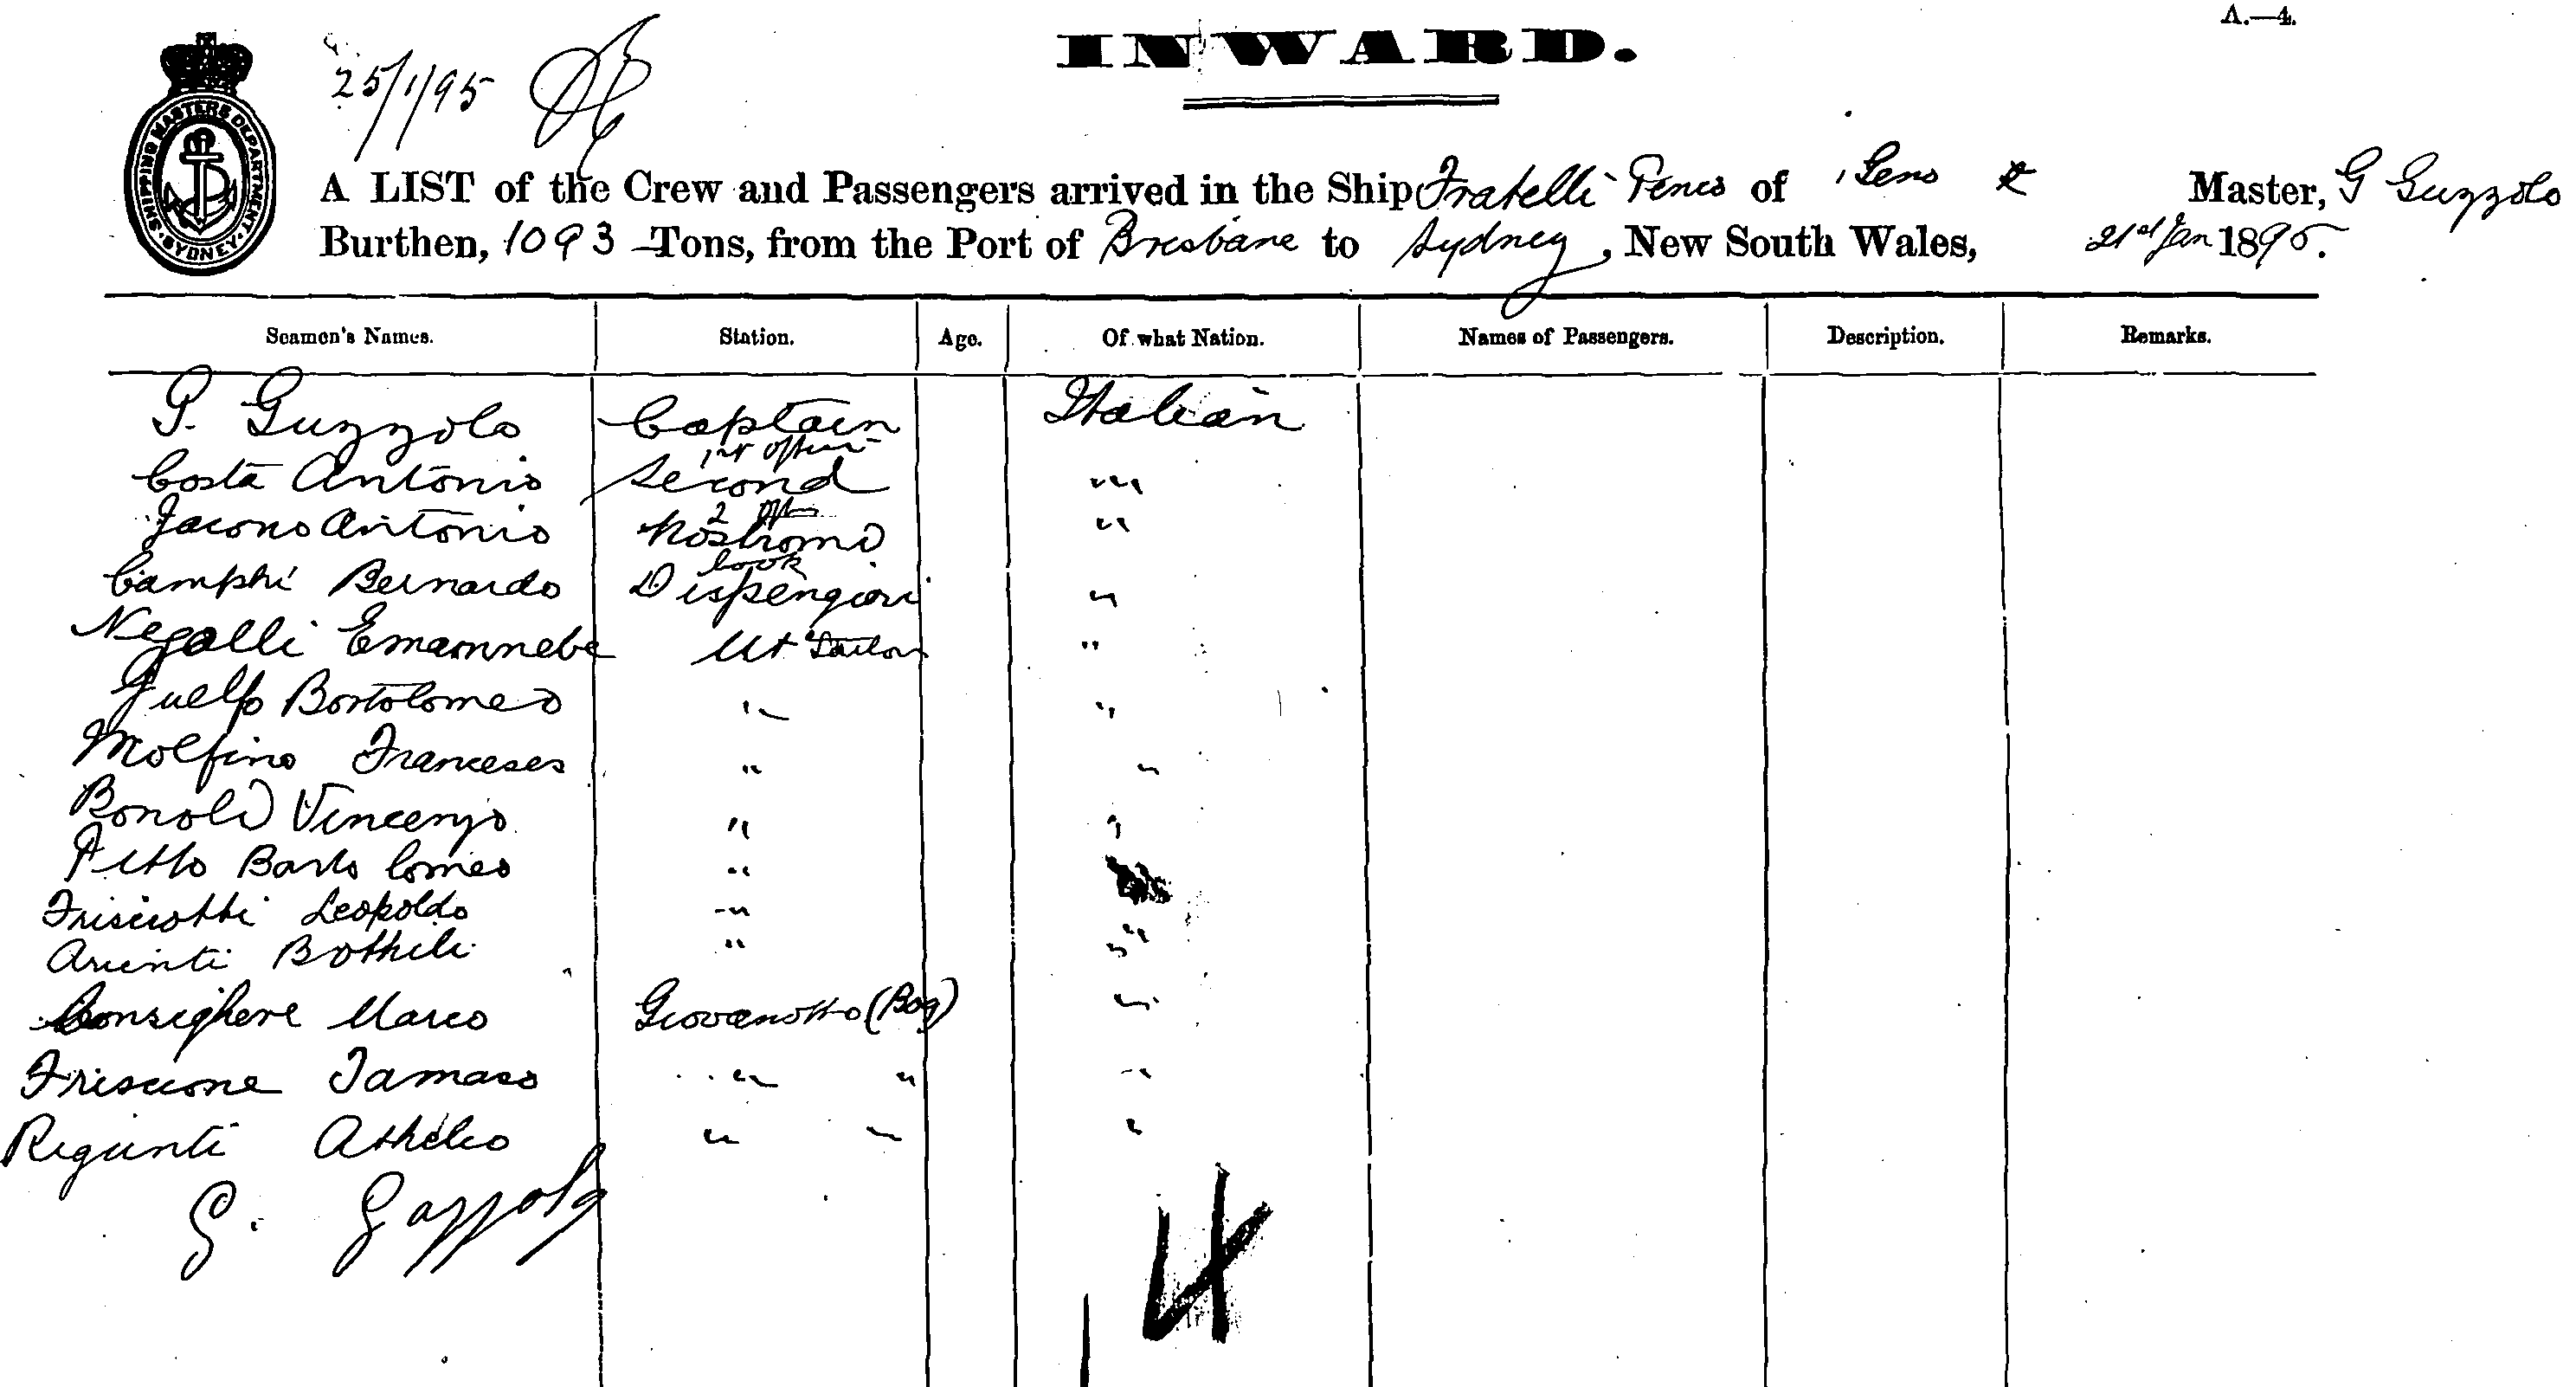 A.—4.
INWARD.
25/1/95
SHIPPING MASTERS DEPARTMENT SYDNEY
A LIST of the Crew and Passengers arrived in the Ship Fratelli of Master, G Guzzolo
Burthen, 1093 Tons, from the Port of Brisbane to Sydney, New South Wales, 21st Jan 1895.
Seamen's Names. Station. Age. Of what Nation. Names of Passengers. Description. Remarks.
G. Guzzolo Captain Italian
1st officer
Costa Antonio Second " "
2
Jacono Antonio Nostromo "
Cook
Camphi Bernardo "
Negalli Emannebe Ut Sailor "
Guelfo Bortolomeo " "
Molfino Francesco " "
Bonoli Vincenzo " "
Pitto Bartolomeo "
Frisciotti Leopoldo "
Arienti Bothili " "
Consighere Marco Giovanotto (Boy) "
Friscione Tamaso " " "
Regunti Athileo " " "
G. Gazzolo
14